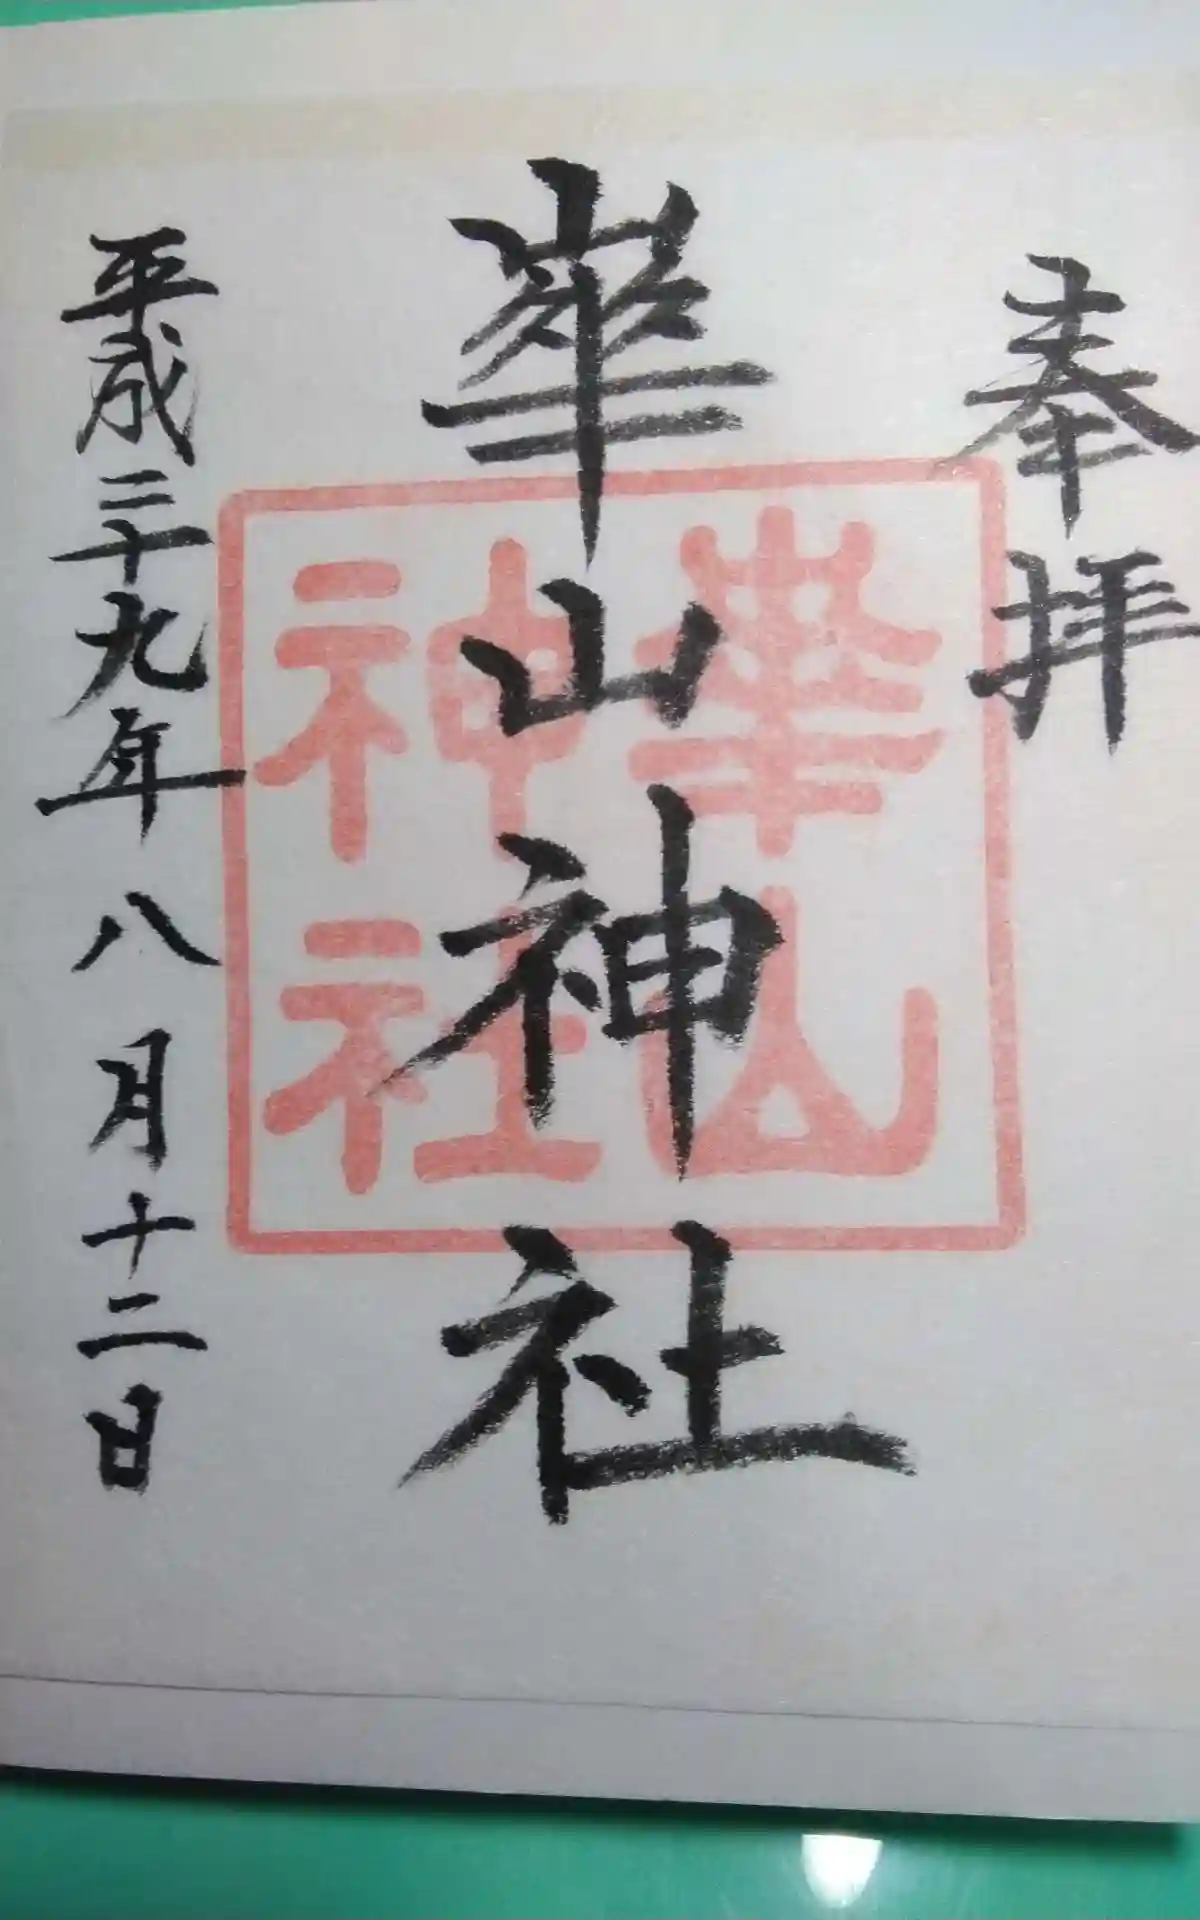 奉拝
崋山神社
崋山
神社
平成二十九年八月十二日